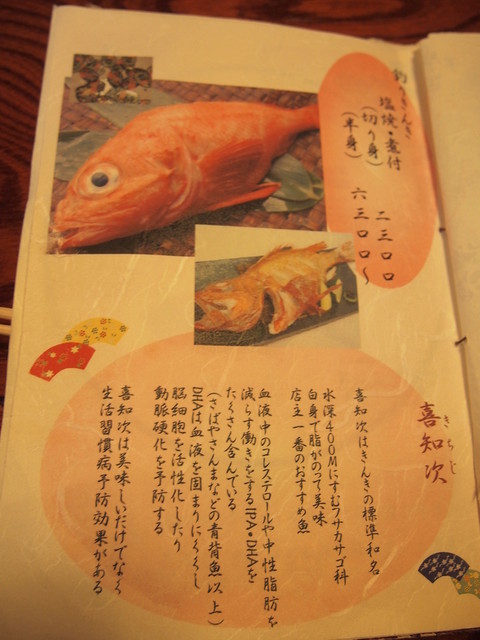 釣りきんき
塩焼・煮付
(切り身) 二三〇〇
(半身) 六三〇〇〜
喜知次
きちじ
喜知次はきんきの標準和名
水深400Mにすむフサカサゴ科
白身で脂がのって美味
店主一番のおすすめ魚
血液中のコレステロールや中性脂肪を
減らす働きをするIPA・DHAを
たくさん含んでいる
(さばやさんまなどの青背魚以上)
DHAは血液を固まりにくくし
脳細胞を活性化したり
動脈硬化を予防する
喜知次は美味しいだけでなく
生活習慣病予防効果がある